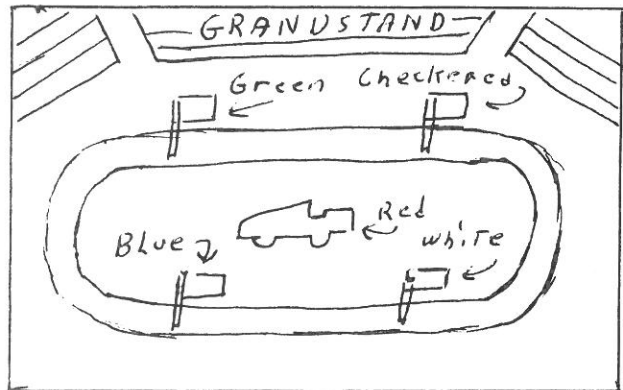 GRANDSTAND
Green
Checkered
Red
Blue
white